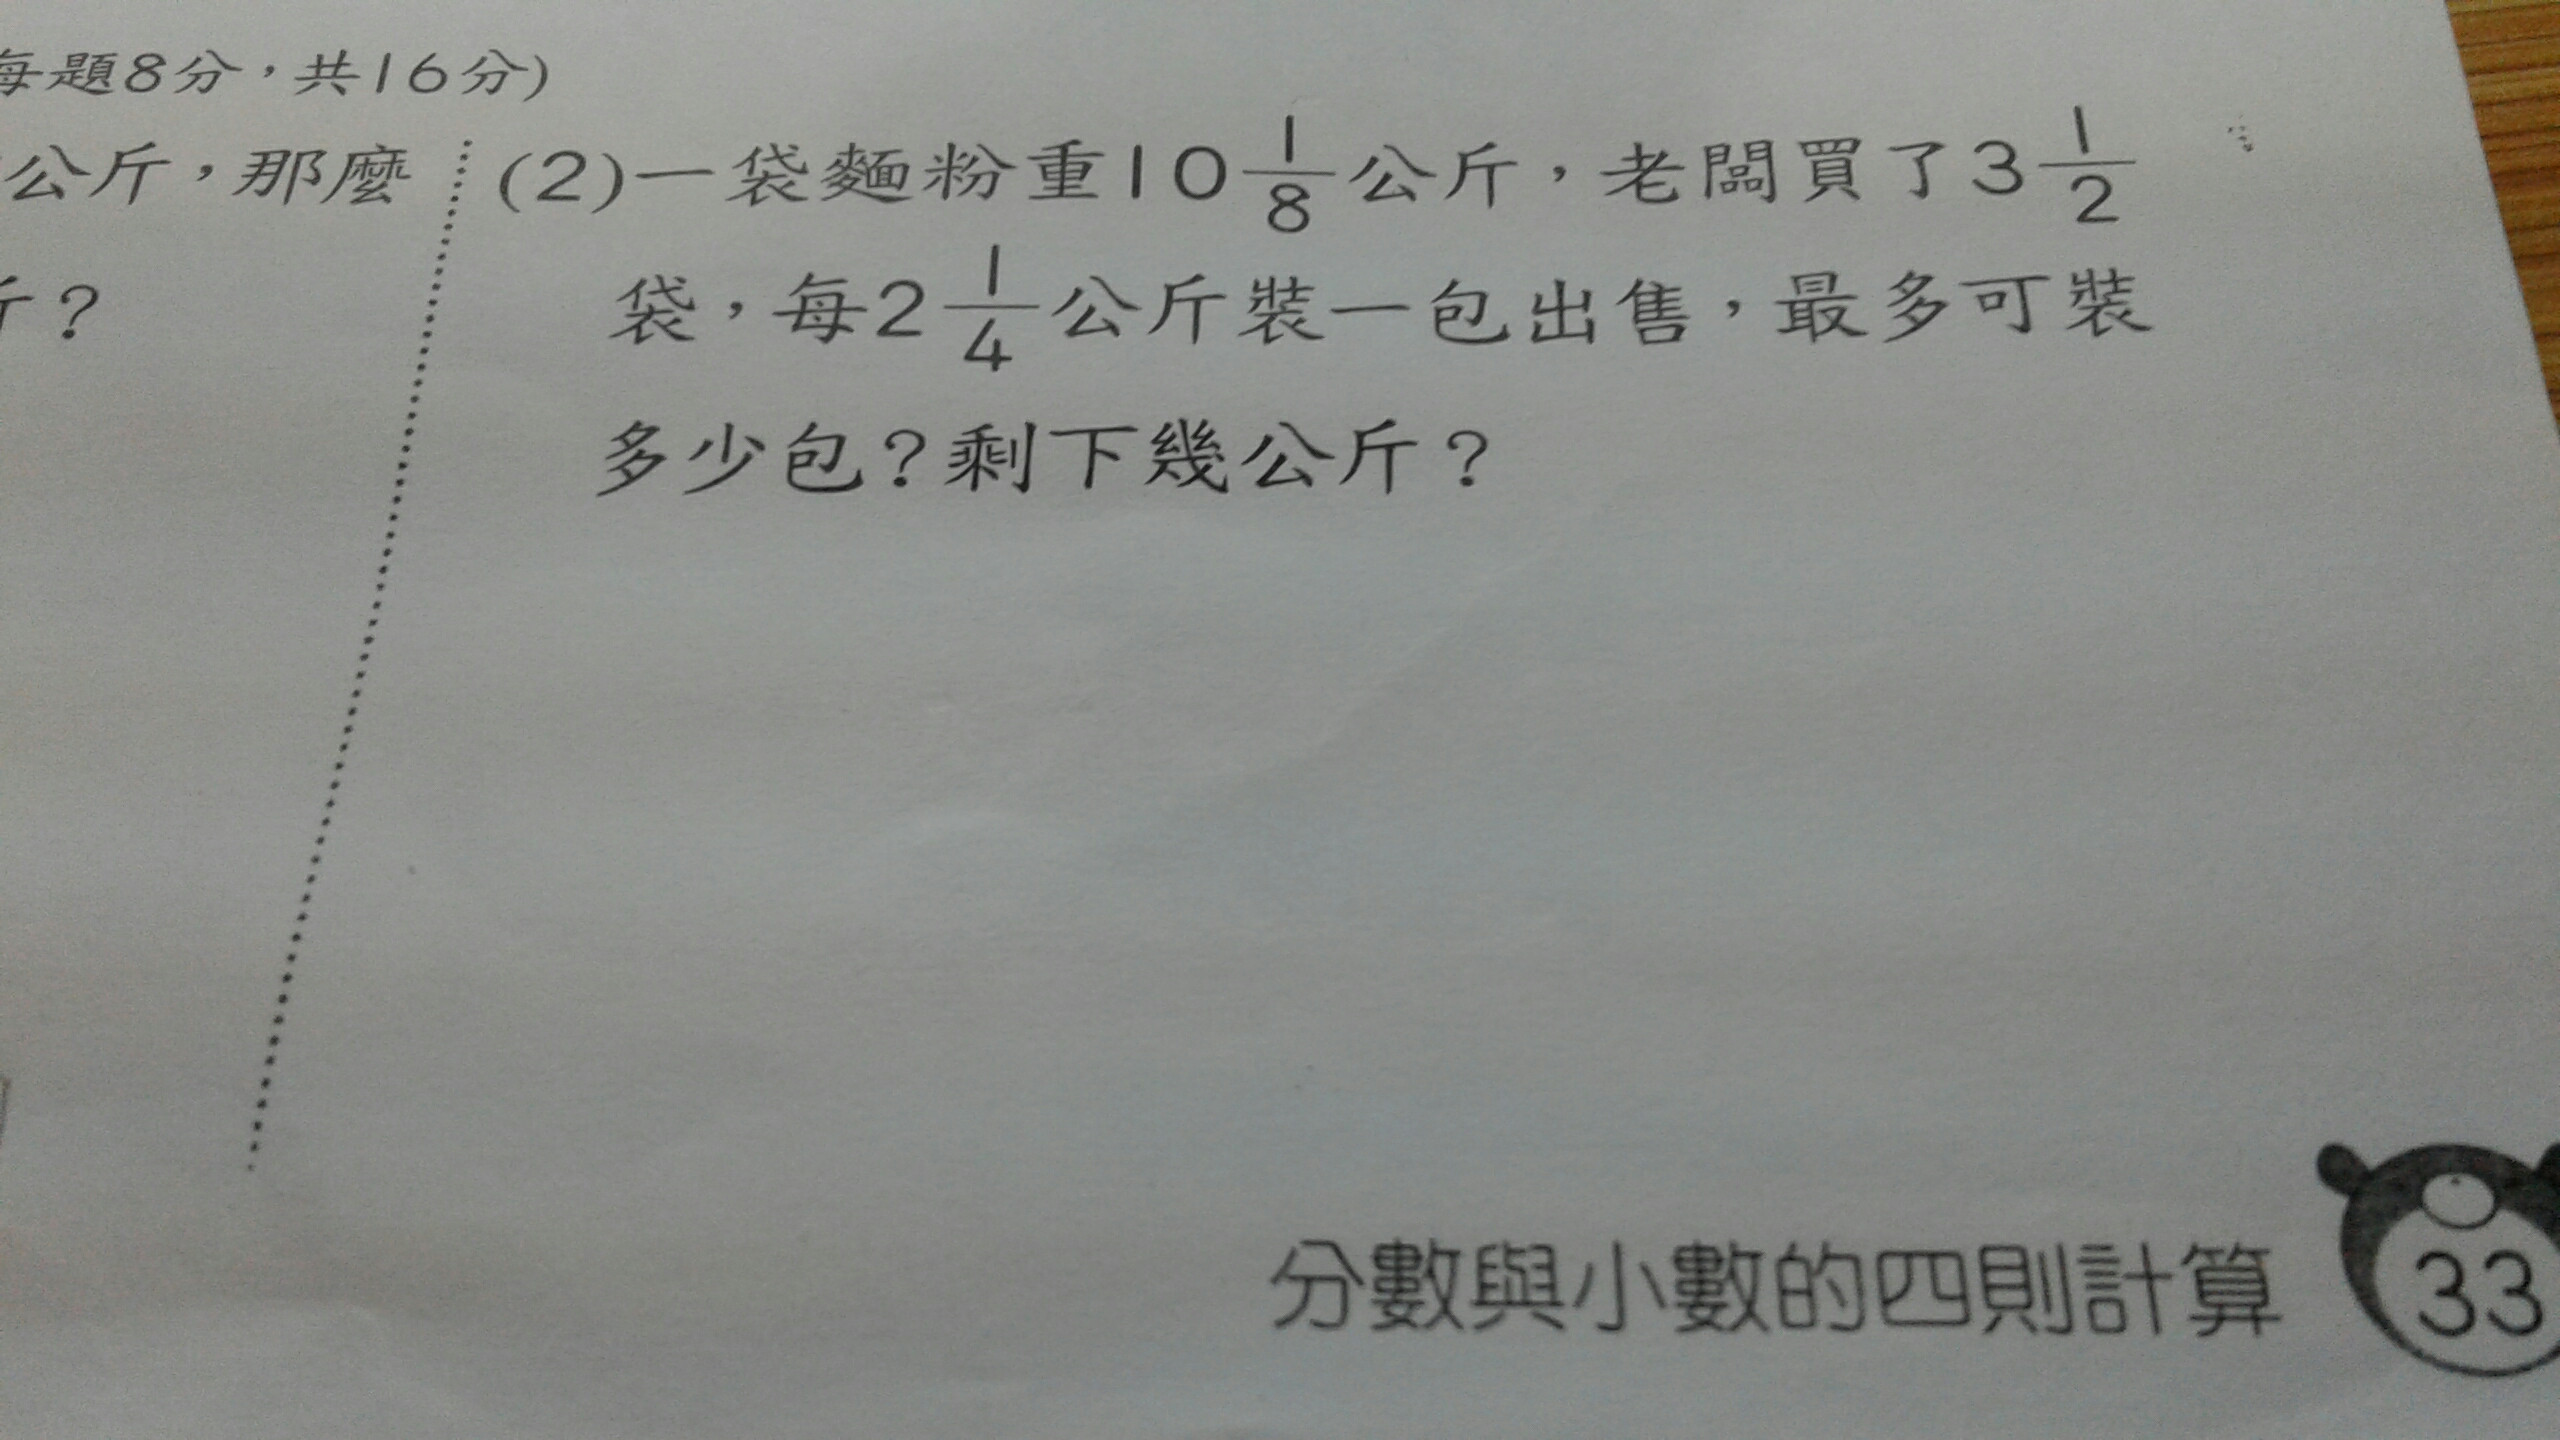 每題8分，共16分)
公斤，那麼
斤？
(2)一袋麵粉重10 1/8 公斤，老闆買了3 1/2
袋，每2 1/4 公斤裝一包出售，最多可裝
多少包？剩下幾公斤？
分數與小數的四則計算 33